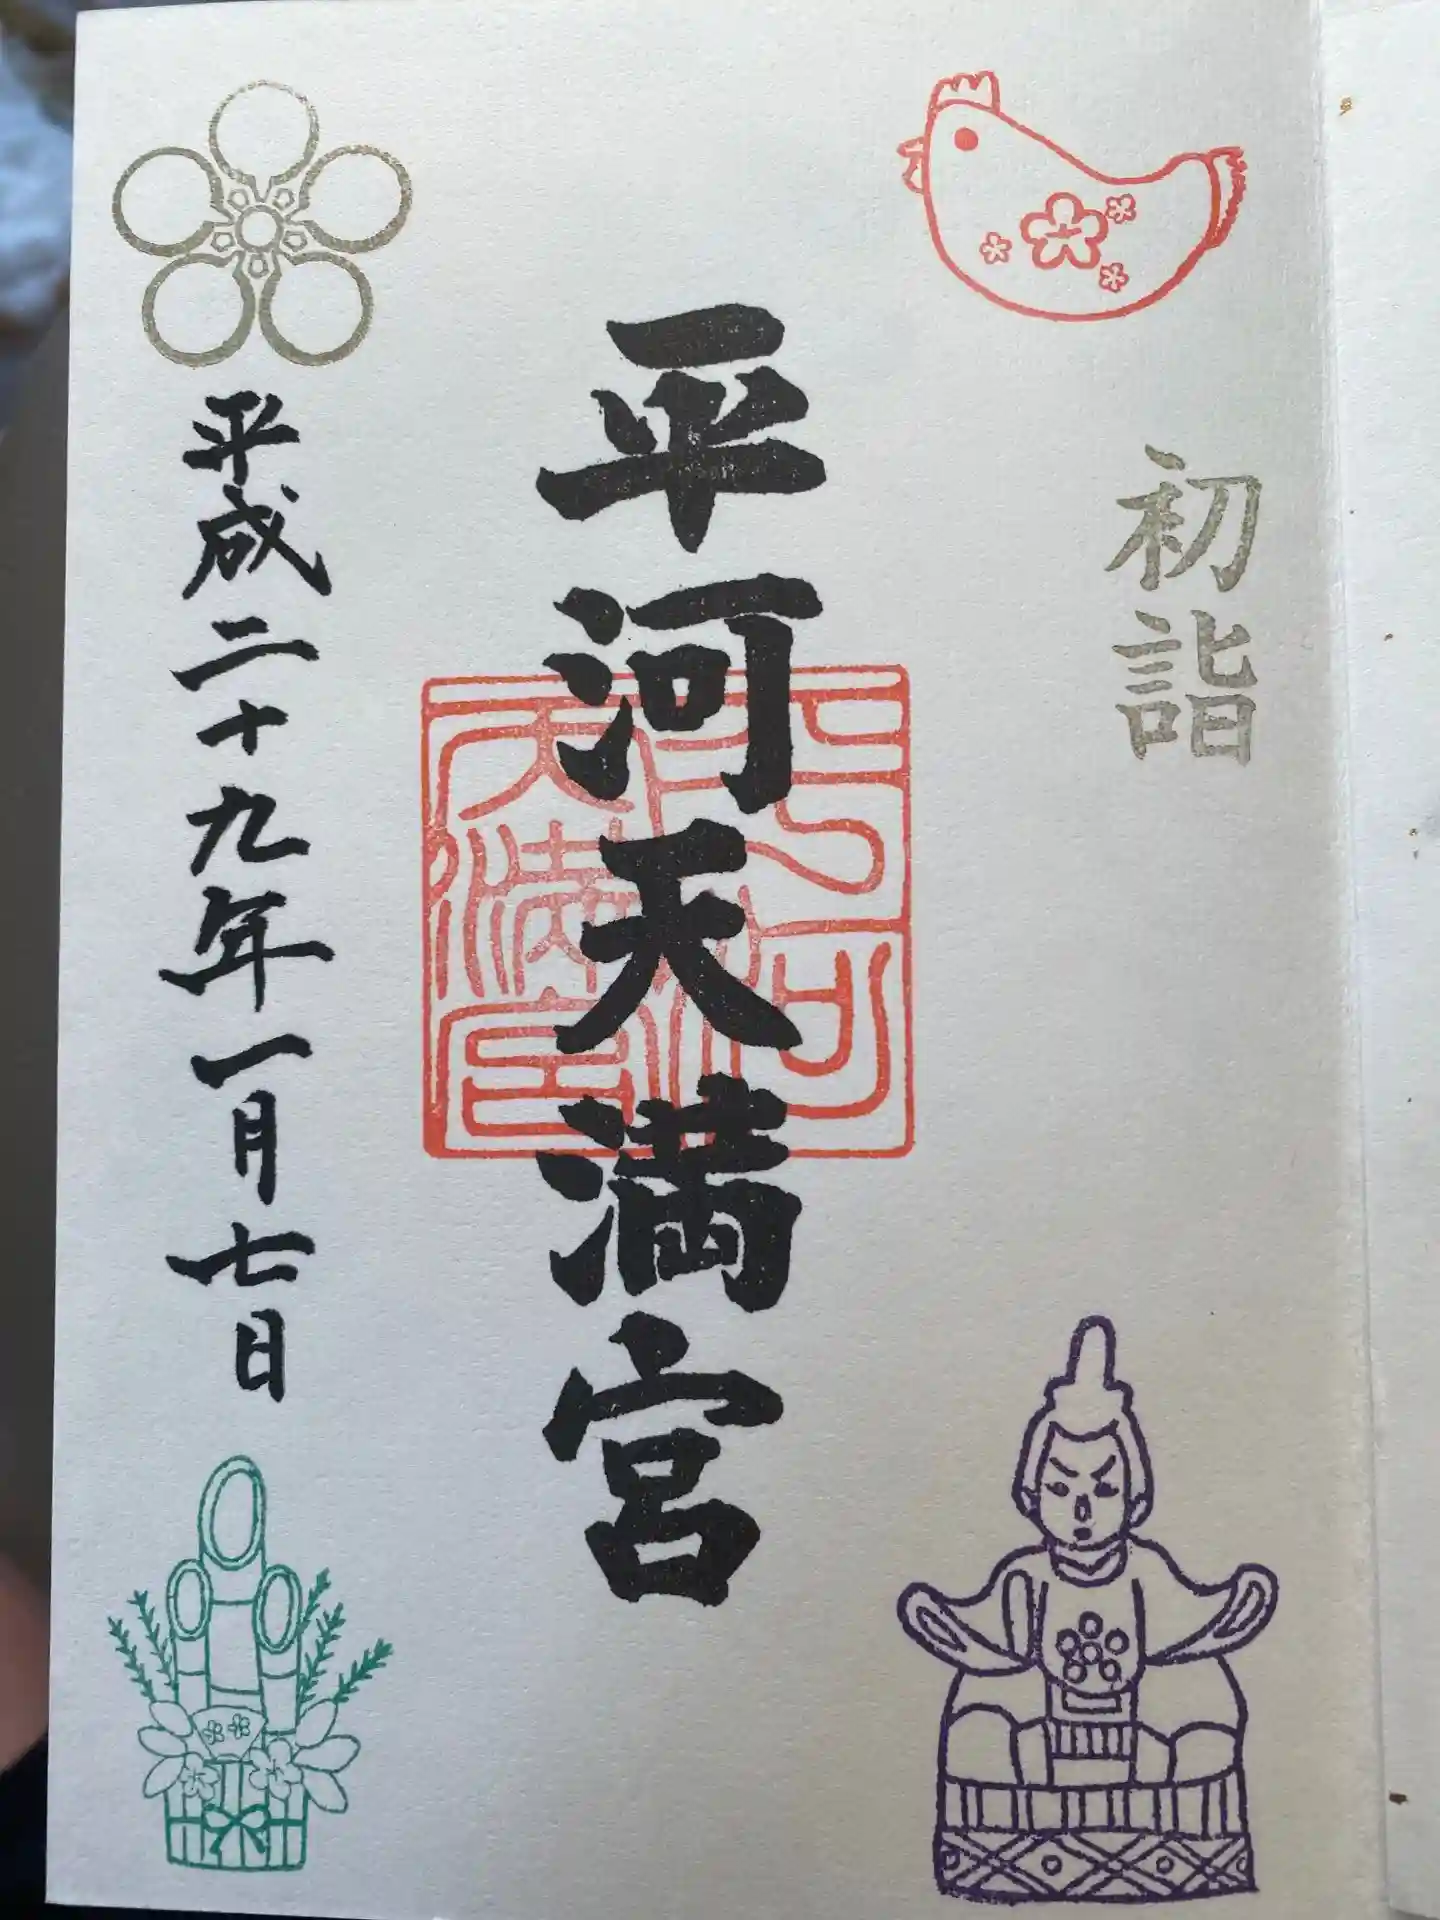 初詣
平河天満宮
平河天満宮
平成二十九年一月七日